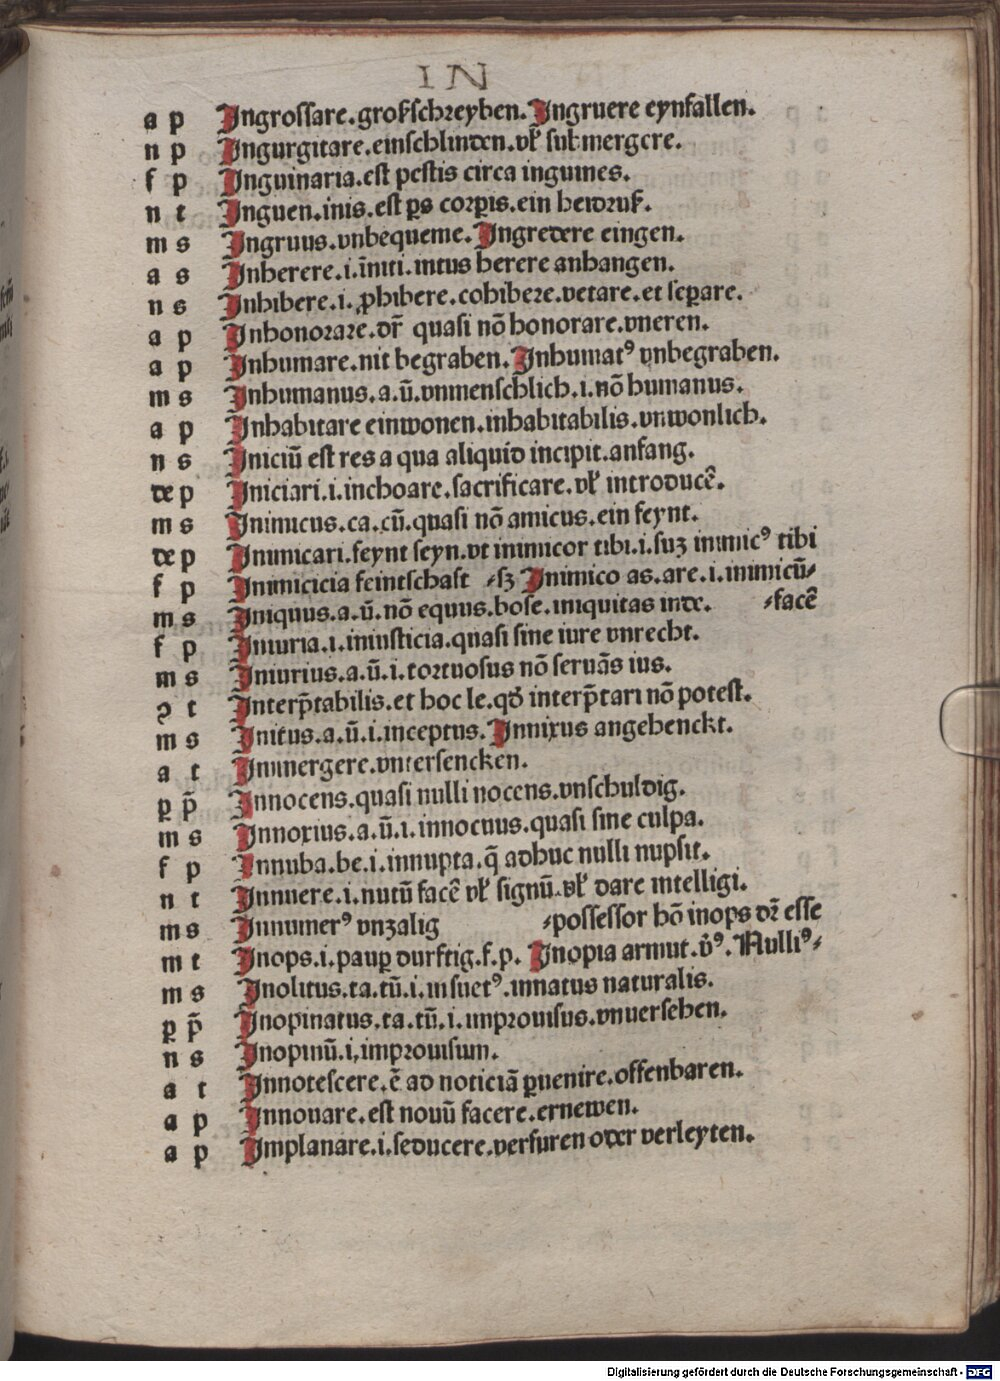 IN
a p Ingroſſare.groſſchreyben. Ingruere eynfallen.
n p Ingurgitare.einſchlinden.vł ſubmergere.
f p Inguinaria.eſt peſtis circa inguines.
n t Inguen.inis.eſt ꝑs corꝑis.ein
m s Ingruus.vnbequeme. Ingredere eingen.
a s Inherere.i.īniti.intus herere anhangen.
n s Inhibere.i.ꝓhibere.cohibere.vetare.et ſeꝑare.
a p Inhonorare.dr̄ quaſi nō honorare.vneren.
a p Inhumare.nit begraben. Inhumatꝰ vnbegraben.
m s Inhumanus.a.ū.vnmenſchlich.i.nō humanus.
a p Inhabitare einwonen.inhabitabilis.vnwonlich.
n s Iniciū eſt res a qua aliquid incipit.anfang.
de p Iniciari.i.inchoare.ſacrificare.vł introducē.
m s Inimicus.ca.cū.quaſi nō amicus.ein feynt.
de p Inimicari.feynt ſeyn.vt inimicor tibi.i.ſuꝫ inimicꝰ tibi
f p Inimicicia feintſchaft ⸗ſꝫ Inimico as.are.i.inimicū⸗
m s Iniquus.a.ū.nō equus.boſe.iniquitas inde. ⸗facē
f p Iniuria.i.iniuſticia.quaſi ſine iure vnrecht.
m s Iniurius.a.ū.i.tortuoſus nō ſeruās ius.
ꝯ t Interp̄tabilis.et hoc le.qd̄ interp̄tari nō poteſt.
m s Initus.a.ū.i.inceptus. Innixus angehenckt.
a t Inmergere.vnterſencken.
ꝑ p̄ Innocens.quaſi nulli nocens.vnſchuldig.
m s Innoxius.a.ū.i.innocuus.quaſi ſine culpa.
f p Innuba.be.i.innupta.q̄ adhuc nulli nupſit.
n t Innuere.i.nutū facē vł ſignū.vł dare intelligi.
m s Innumerꝰ vnzalig ⸗poſſeſſor hō inops dr̄ eſſe
m t Inops.i.pauꝑ durftig.f.p. Inopia armut.v̄ꝰ. Nulliꝰ⸗
m s Inolitus.ta.tū.i.inſuetꝰ.innatus naturalis.
ꝑ p̄ Inopinatus.ta.tū.i.improuiſus.vnuerſehen.
n s Inopinū.i.improuiſum.
a t Innoteſcere.ē ad noticiā ꝑuenire.offenbaren.
a p Innouare.eſt nouū facere.ernewen.
a p Implanare.i.ſeducere.verfuren oder verleyten.
Digitalisierung gefördert durch die Deutsche Forschungsgemeinschaft - DFG